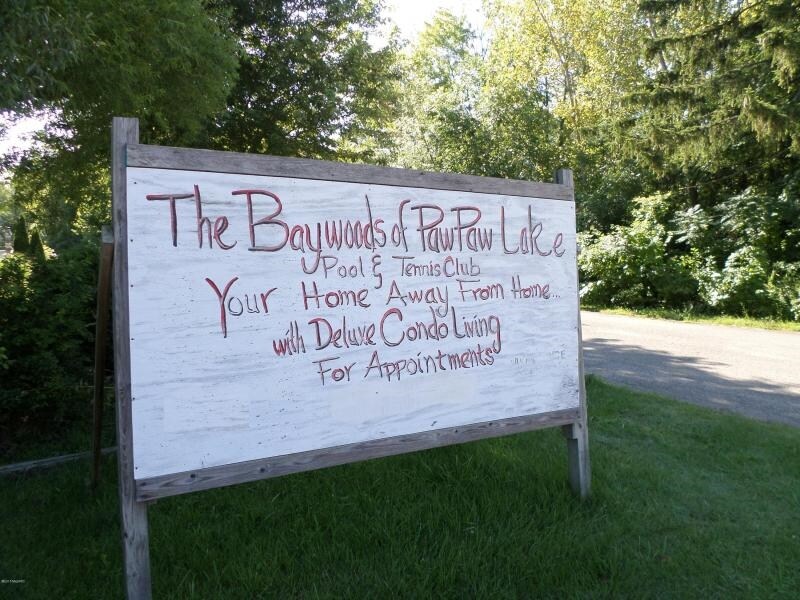 The Baywoods of PawPaw Lake
Pool & Tennis Club
Your Home Away From Home...
with Deluxe Condo Living
For Appointments